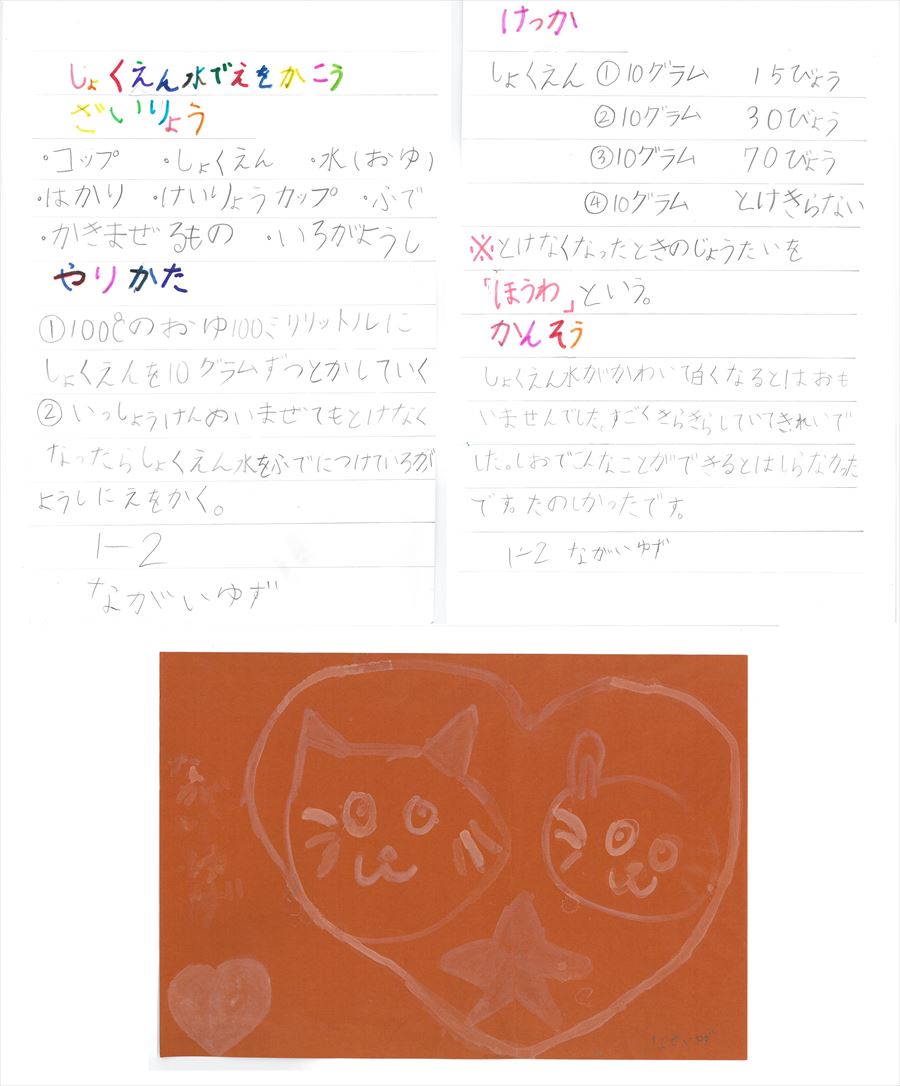 しょくえん水でえをかこう
ざいりょう
・コップ ・しょくえん ・水(おゆ)
・はかり ・けいりょうカップ ・ふで
・かきまぜるもの ・いろがようし
やりかた
①100℃のおゆ100ミリリットルに
しょくえんを10グラムずつとかしていく
②いっしょうけんめいまぜてもとけなく
なったらしょくえん水をふでにつけているが
ようしにえをかく。
1-2
ながいゆず
けっか
しょくえん①10グラム 15びょう
②10グラム 30びょう
③10グラム 70びょう
④10グラム とけきらない
※とけなくなったときのじょうたいを
「ほうわ」という。
かんそう
しょくえん水がかわいて白くなるとはおも
いませんでした。すごくきらきらしていてきれいで
した。しおでこんなことができるとはしらなかった
です。たのしかったです。
1-2 ながいゆず
ながい
ゆず
ながいゆず